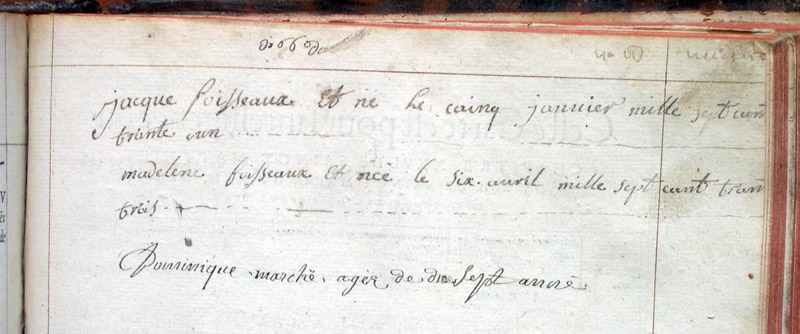 jacque foisseaux Et né Le cainq janvier mille sept cant
trante un
madelene foisseaux Et née le six avril mille sept cant trant
trois
Dominique marché ager de dix sept anné